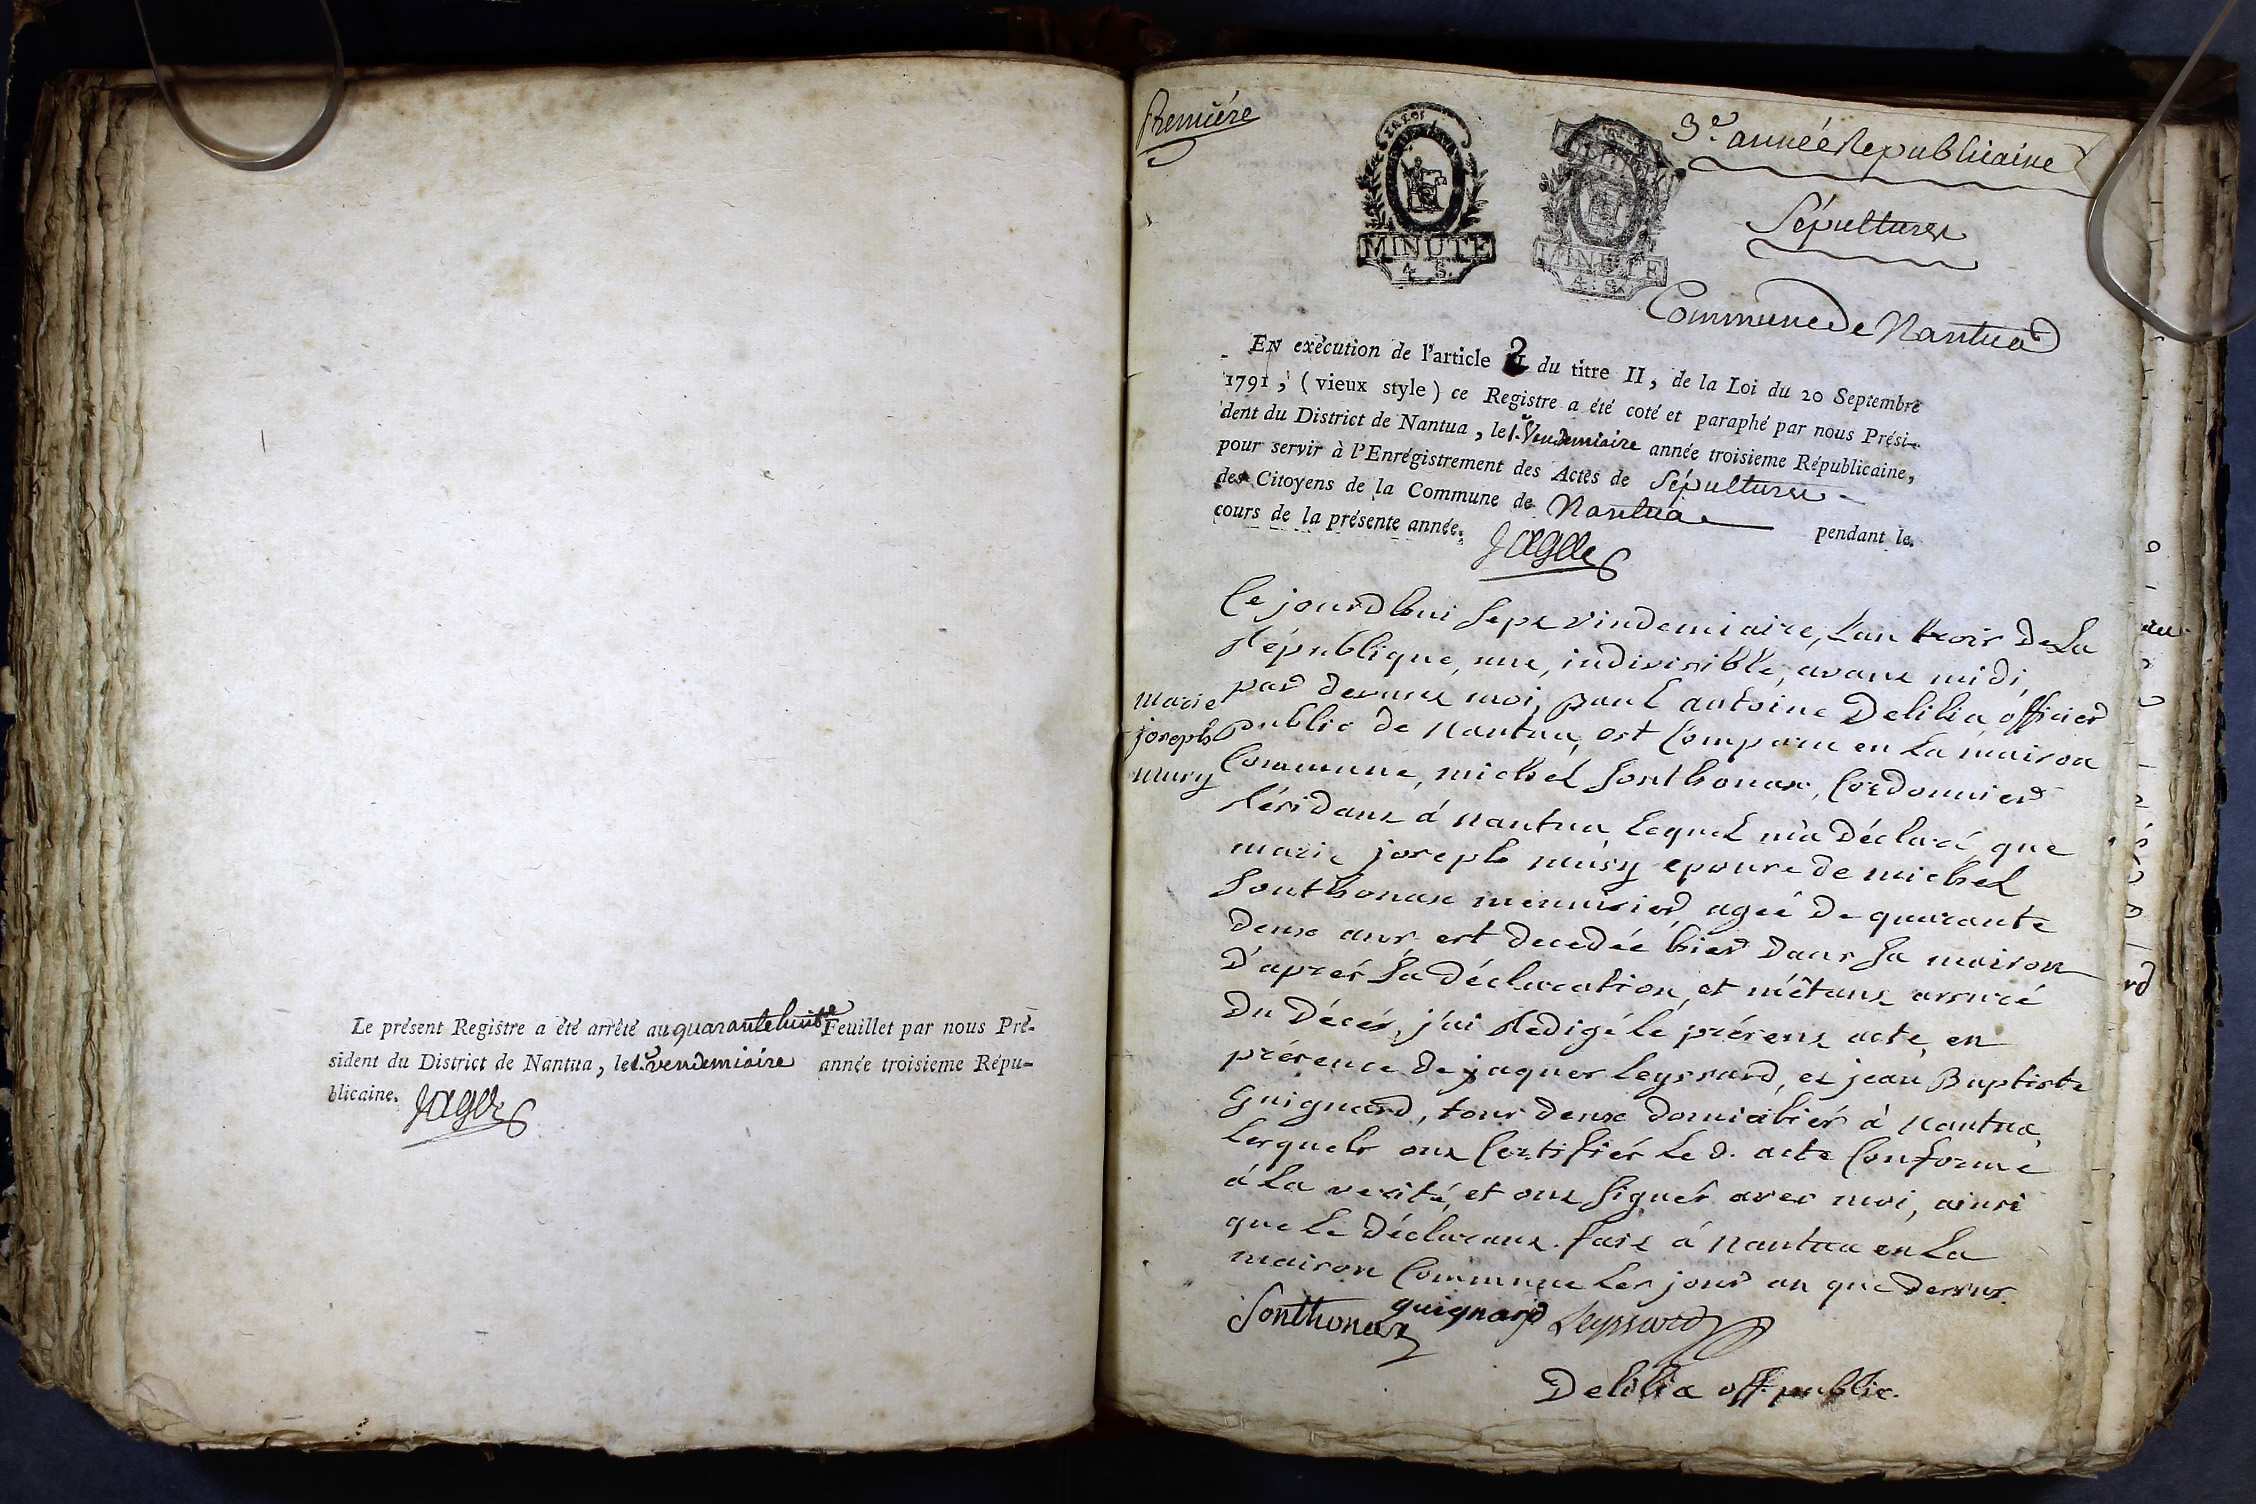 Le présent Registre a été arrêté au quarante huite Feuillet par nous Pré-
sident du District de Nantua, le 1.er vendemiaire année troisieme Répu-
blicaine.
Premiére
3.e année Republicaine
Sépultures
MINUTE
4. S.
MINUTE
4. S.
Commune de Nantua
EN exécution de l'article 2 du titre II, de la Loi du 20 Septembre
1791, (vieux style) ce Registre a été coté et paraphé par nous Prési-
dent du District de Nantua, le 1.er Vendemiaire année troisieme Républicaine,
pour servir à l'Enrégistrement des Actes de Sépultures
des Citoyens de la Commune de Nantua pendant le
cours de la présente année.
Marie
joseph
mury
Ce jourdhui sept vindemiaire, l'an trois de La
République, une, indivisible, avant midi,
par devant moi, paul antoine Delilia officier
public de nantua, est Comparu en La maison
Commune, michel Sonthonax, Cordonnier
Résidant á nantua Lequel m'a Déclaré que
marie joseph musy epouse de michel
Sonthonax menuisier, ageé De quarante
Deux ans est Decedée hier Dans Sa maison
D'aprés Sa Déclaration, et m'étant assuré
Du Décés, j'ai Redigé Le présent acte, en
présence De jaques Leyssard, et jean Baptiste
Guignard, tous Deux Domiciliés à nantua,
Lesquels ont Certifiés Le d. acte Conforme
á La verité, et ont Signés avec moi, ainsi
que Le Déclarant. fait á nantua en La
maison Commune Les jour an que Dessus.
Sonthonax guignard Leyssard
Delilia off. public.